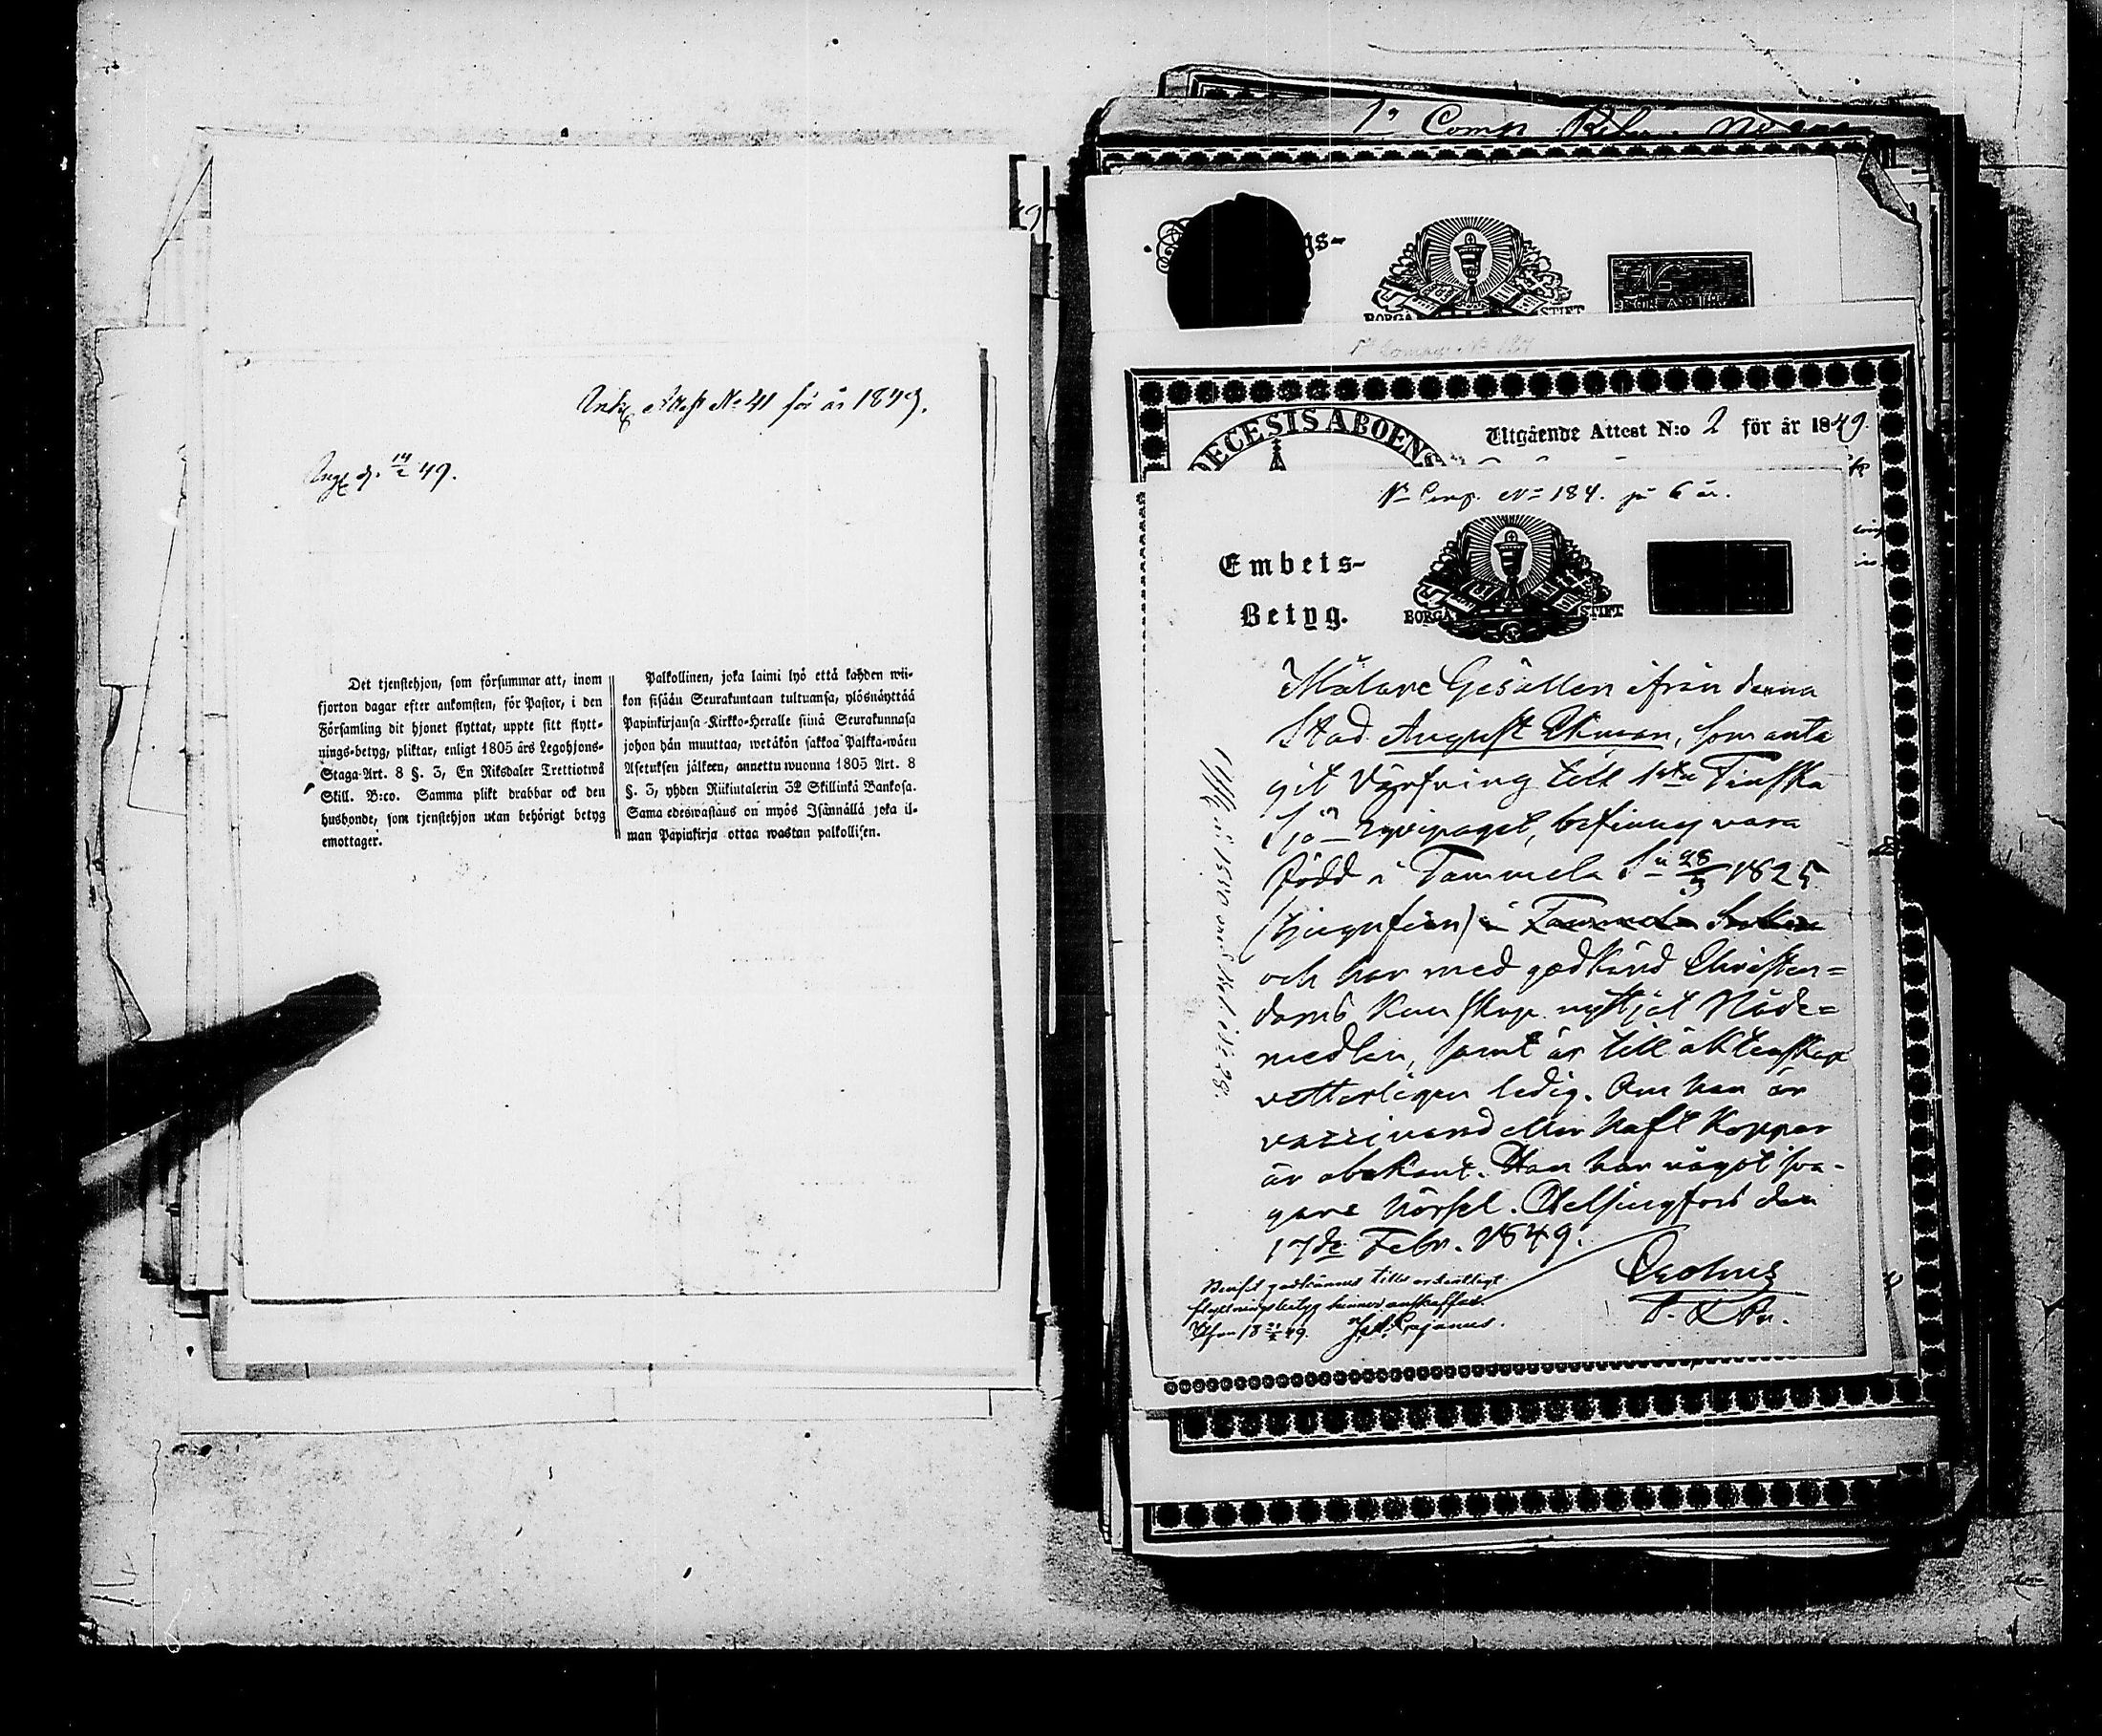 Attest No 41 för år 1849.
49.
Det tjenstehjon, som försummar att, inom
fjorton dagar efter ankomsten, för Pastor, i den
Församling dit hjonet flyttat, uppte sitt flytt-
nings-betyg, pliktar, enligt 1805 års Legohjons-
Staga Art. 8 §. 3, En Riksdaler Trettiotwå
Skill. B:co. Samma plikt drabbar ock den
husbonde, som tjenstehjon utan behörigt betyg
emottager.
Palkollinen, joka laimi lyö että kahden wii-
kon sisään Seurakuntaan tultuansa, ylösnäyttää
Papinkirjansa Kirkko-Heralle siinä Seurakunnasa
johon hän muuttaa, wetäkön sakkoa Palkka-wäen
Asetuksen jälkeen, annettu wuonna 1805 Art. 8
§. 3, yhden Riikintalerin 32 Skillinkä Bankosa.
Sama edeswastaus on myös Isännällä joka il-
man Papinkirja ottaa wastan palkollisen.
1a Comp.
gs-
BORGÅ STIFT
DECESIS ABOENS
Utgående Attest N:o 2 för år 1849.
1a Comp. No 184. på 6 år.
Embets-
Betyg.
BORGÅ STIFT
Målare Gesällen ifrån denna
Stad August Ekman, som anta
git Värfning till 1sta Finska
Sjö-Equipaget, befinnes vara
född i Tammela den 28/3 1825
(tjugufem) i Tammela Socken
och har med godkänd Christen=
doms Kunskap nyttjat Nåde=
medlen, samt är till äktenskap
vetterligen ledig. Om han är
vaccinerad eller haft Koppor
är obekant. Han har något sva-
gare hörsel. Helsingfors den
17de Febr. 1849.
godkännes tills ordentligt
flyttningsbetyg hinner anskaffas.